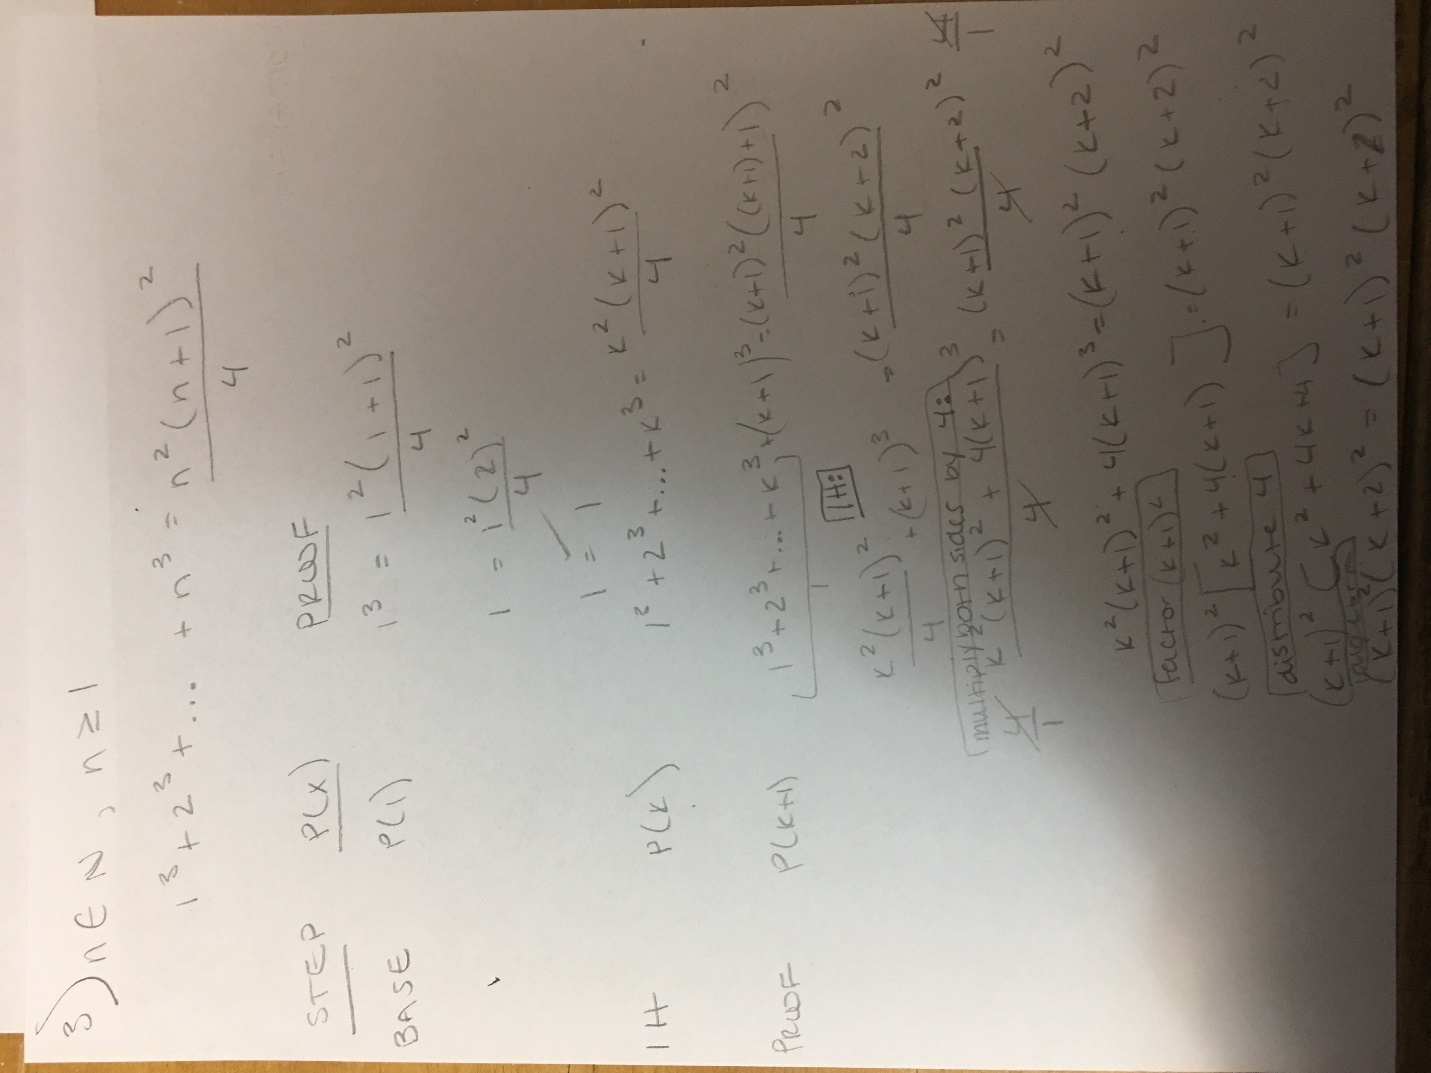 3) n ∈ N, n ≥ 1
1³ + 2³ + ... + n³ = n²(n+1)²/4
STEP P(x) PROOF
BASE P(1) 1³ = 1²(1+1)²/4
1 = 1²(2)²/4
✓ 1 = 1
IH P(k) 1³ + 2³ + ... + k³ = k²(k+1)²/4
PROOF P(k+1) 1³ + 2³ + ... + k³ + (k+1)³ = (k+1)²((k+1)+1)²/4
IH:
k²(k+1)²/4 + (k+1)³ = (k+1)²(k+2)²/4
multiply both sides by 4:
4/1 k²(k+1)² + 4(k+1)³/4 = (k+1)²(k+2)²/4 4/1
k²(k+1)² + 4(k+1)³ = (k+1)²(k+2)²
factor (k+1)²
(k+1)² [k² + 4(k+1)] = (k+1)²(k+2)²
distribute 4
(k+1)² [k² + 4k + 4] = (k+1)²(k+2)²
(k+1)²(k+2)² = (k+1)²(k+2)²